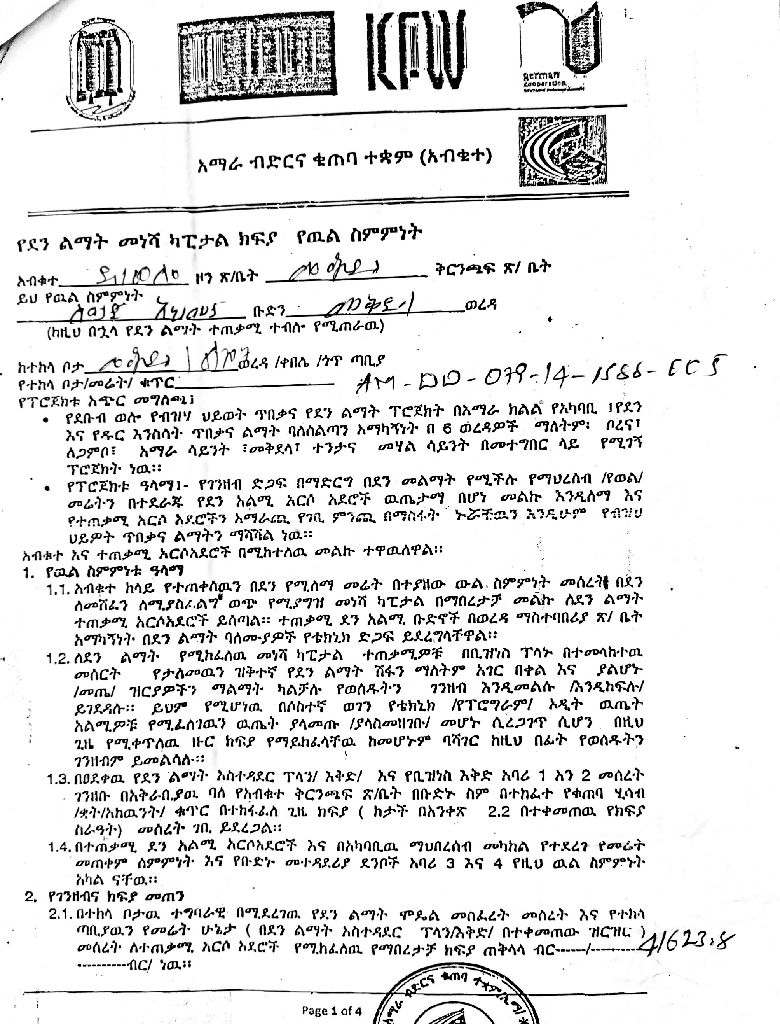 KFW
german
cooperation
አማራ ብድርና ቁጠባ ተቋም (አብቁተ)
የደን ልማት መነሻ ካፒታል ክፍያ የዉል ስምምነት
አብቁተ ዞን ጽ/ቤት ቅርንጫፍ ጽ/ ቤት
ይህ የዉል ስምምነት
ቡድን መቅደላ ወረዳ
(ከዚህ በኋላ የደን ልማት ተጠቃሚ ተብሎ የሚጠራዉ)
ከተከላ ቦታ ወረዳ /ቀበሌ /ጎጥ ጣቢያ
የተከላ ቦታ/መሬት/ ቁጥር AM-DD-079-14-1588-EC5
የፕሮጀክቱ አጭር መግለጫ፤
• የደቡብ ወሎ የብዝሃ ህይወት ጥበቃና የደን ልማት ፕሮጀክት በአማራ ክልል የአካባቢ ፤የደን
እና የዱር እንስሳት ጥበቃና ልማት ባለስልጣን አማካኝነት በ 6 ወረዳዎች ማለትም፡ ቦረና፣
ለጋምቦ፣ አማራ ሳይንት ፣መቅደላ፣ ተንታና መሃል ሳይንት በመተግበር ላይ የሚገኝ
ፕሮጀክት ነዉ።
• የፕሮጀክቱ ዓላማ፤- የገንዘብ ድጋፍ በማድርግ በደን መልማት የሚችሉ የማህረሰብ /የወል/
መሬትን በተደራጁ የደን አልሚ አርሶ አደሮች ዉጤታማ በሆነ መልኩ እንዲለማ እና
የተጠቃሚ አርሶ አደሮችን አማራጪ የገቢ ምንጪ በማስፋት ኑሯቸዉን እንዲሁም የብዝሀ
ህይዎት ጥበቃና ልማትን ማሻሻል ነዉ።
አብቁተ እና ተጠቃሚ አርሶአደሮች በሚከተለዉ መልኩ ተዋዉለዋል።
1. የዉል ስምምነቱ ዓላማ
1.1. አብቁተ ከላይ የተጠቀሰዉን በደን የሚለማ መሬት በተያዘው ውል ስምምነት መሰረት በደን
ለመሸፈን ለሚያስፈልግ ወጭ የሚያግዝ መነሻ ካፒታል በማበረታቻ መልኩ ለደን ልማት
ተጠቃሚ አርሶአደሮች ይሰጣል። ተጠቃሚ ደን አልሚ ቡድኖች በወረዳ ማስተባበሪያ ጽ/ ቤት
አማካኝነት በደን ልማት ባለሙያዎች የቴክኒክ ድጋፍ ይደረግላቸዋል።
1.2. ለደን ልማት የሚከፈለዉ መነሻ ካፒታል ተጠቃሚዎቹ በቢዝነስ ፕላኑ በተመላከተዉ
መሰርት የታለመዉን ዝቅተኛ የደን ልማት ሽፋን ማለትም አገር በቀል እና ያልሆኑ
/መጤ/ ዝርያዎችን ማልማት ካልቻሉ የወሰዱትን ገንዘብ እንዲመልሱ /እንዲከፍሉ/
ይገደዳሉ። ይህም የሚሆነዉ በሶስተኛ ወገን የቴክኒክ /የፕሮግራም/ ኦዲት ዉጤት
አልሚዎቹ የሚፈለገዉን ዉጤት ያላመጡ /ያላስመዘገቡ/ መሆኑ ሲረጋገጥ ሲሆን በዚህ
ጊዜ የሚቀጥለዉ ዙር ክፍያ የማይከፈላቸዉ ከመሆኑም ባሻገር ከዚህ በፊት የወሰዱትን
ገንዘብም ይመልሳሉ።
1.3. በፀደቀዉ የደን ልማት አስተዳደር ፕላን/ አቅድ/ እና የቢዝነስ እቅድ አባሪ 1 አን 2 መሰረት
ገንዘቡ በአቅራቢያዉ ባለ የአብቁተ ቅርንጫፍ ጽ/ቤት በቡድኑ ስም በተከፈተ የቁጠባ ሂሳብ
/ቋት/አካዉንት/ ቁጥር በተከፋፈለ ጊዜ ክፍያ ( ከታች በአንቀጽ 2.2 በተቀመጠዉ የክፍያ
ስራዓት) መሰረት ገቢ ይደረጋል።
1.4. በተጠቃሚ ደን አልሚ አርሶአደሮች እና በአካባቢዉ ማህበረሰብ መካከል የተደረገ የመሬት
መጠቀም ስምምነት እና የቡድኑ መተዳደሪያ ደንቦች አባሪ 3 እና 4 የዚህ ዉል ስምምነት
አካል ናቸዉ።
2. የገንዘብና ክፍያ መጠን
2.1. በተከላ ቦታዉ ተግባራዊ በሚደረገዉ የደን ልማት ሞዴል መስፈረት መሰረት እና የተከላ
ጣቢያዉን የመሬት ሁኔታ ( በደን ልማት አስተዳደር ፕላን/እቅድ/ በተቀመጠው ዝርዝር )
መሰረት ለተጠቃሚ አርሶ አደሮች የሚከፈለዉ የማበረታቻ ክፍያ ጠቅላላ ብር------/--------- 41623.8
----------ብር/ ነዉ።
Page 1 of 4
አማራ ብድርና ቁጠባ ተቋም